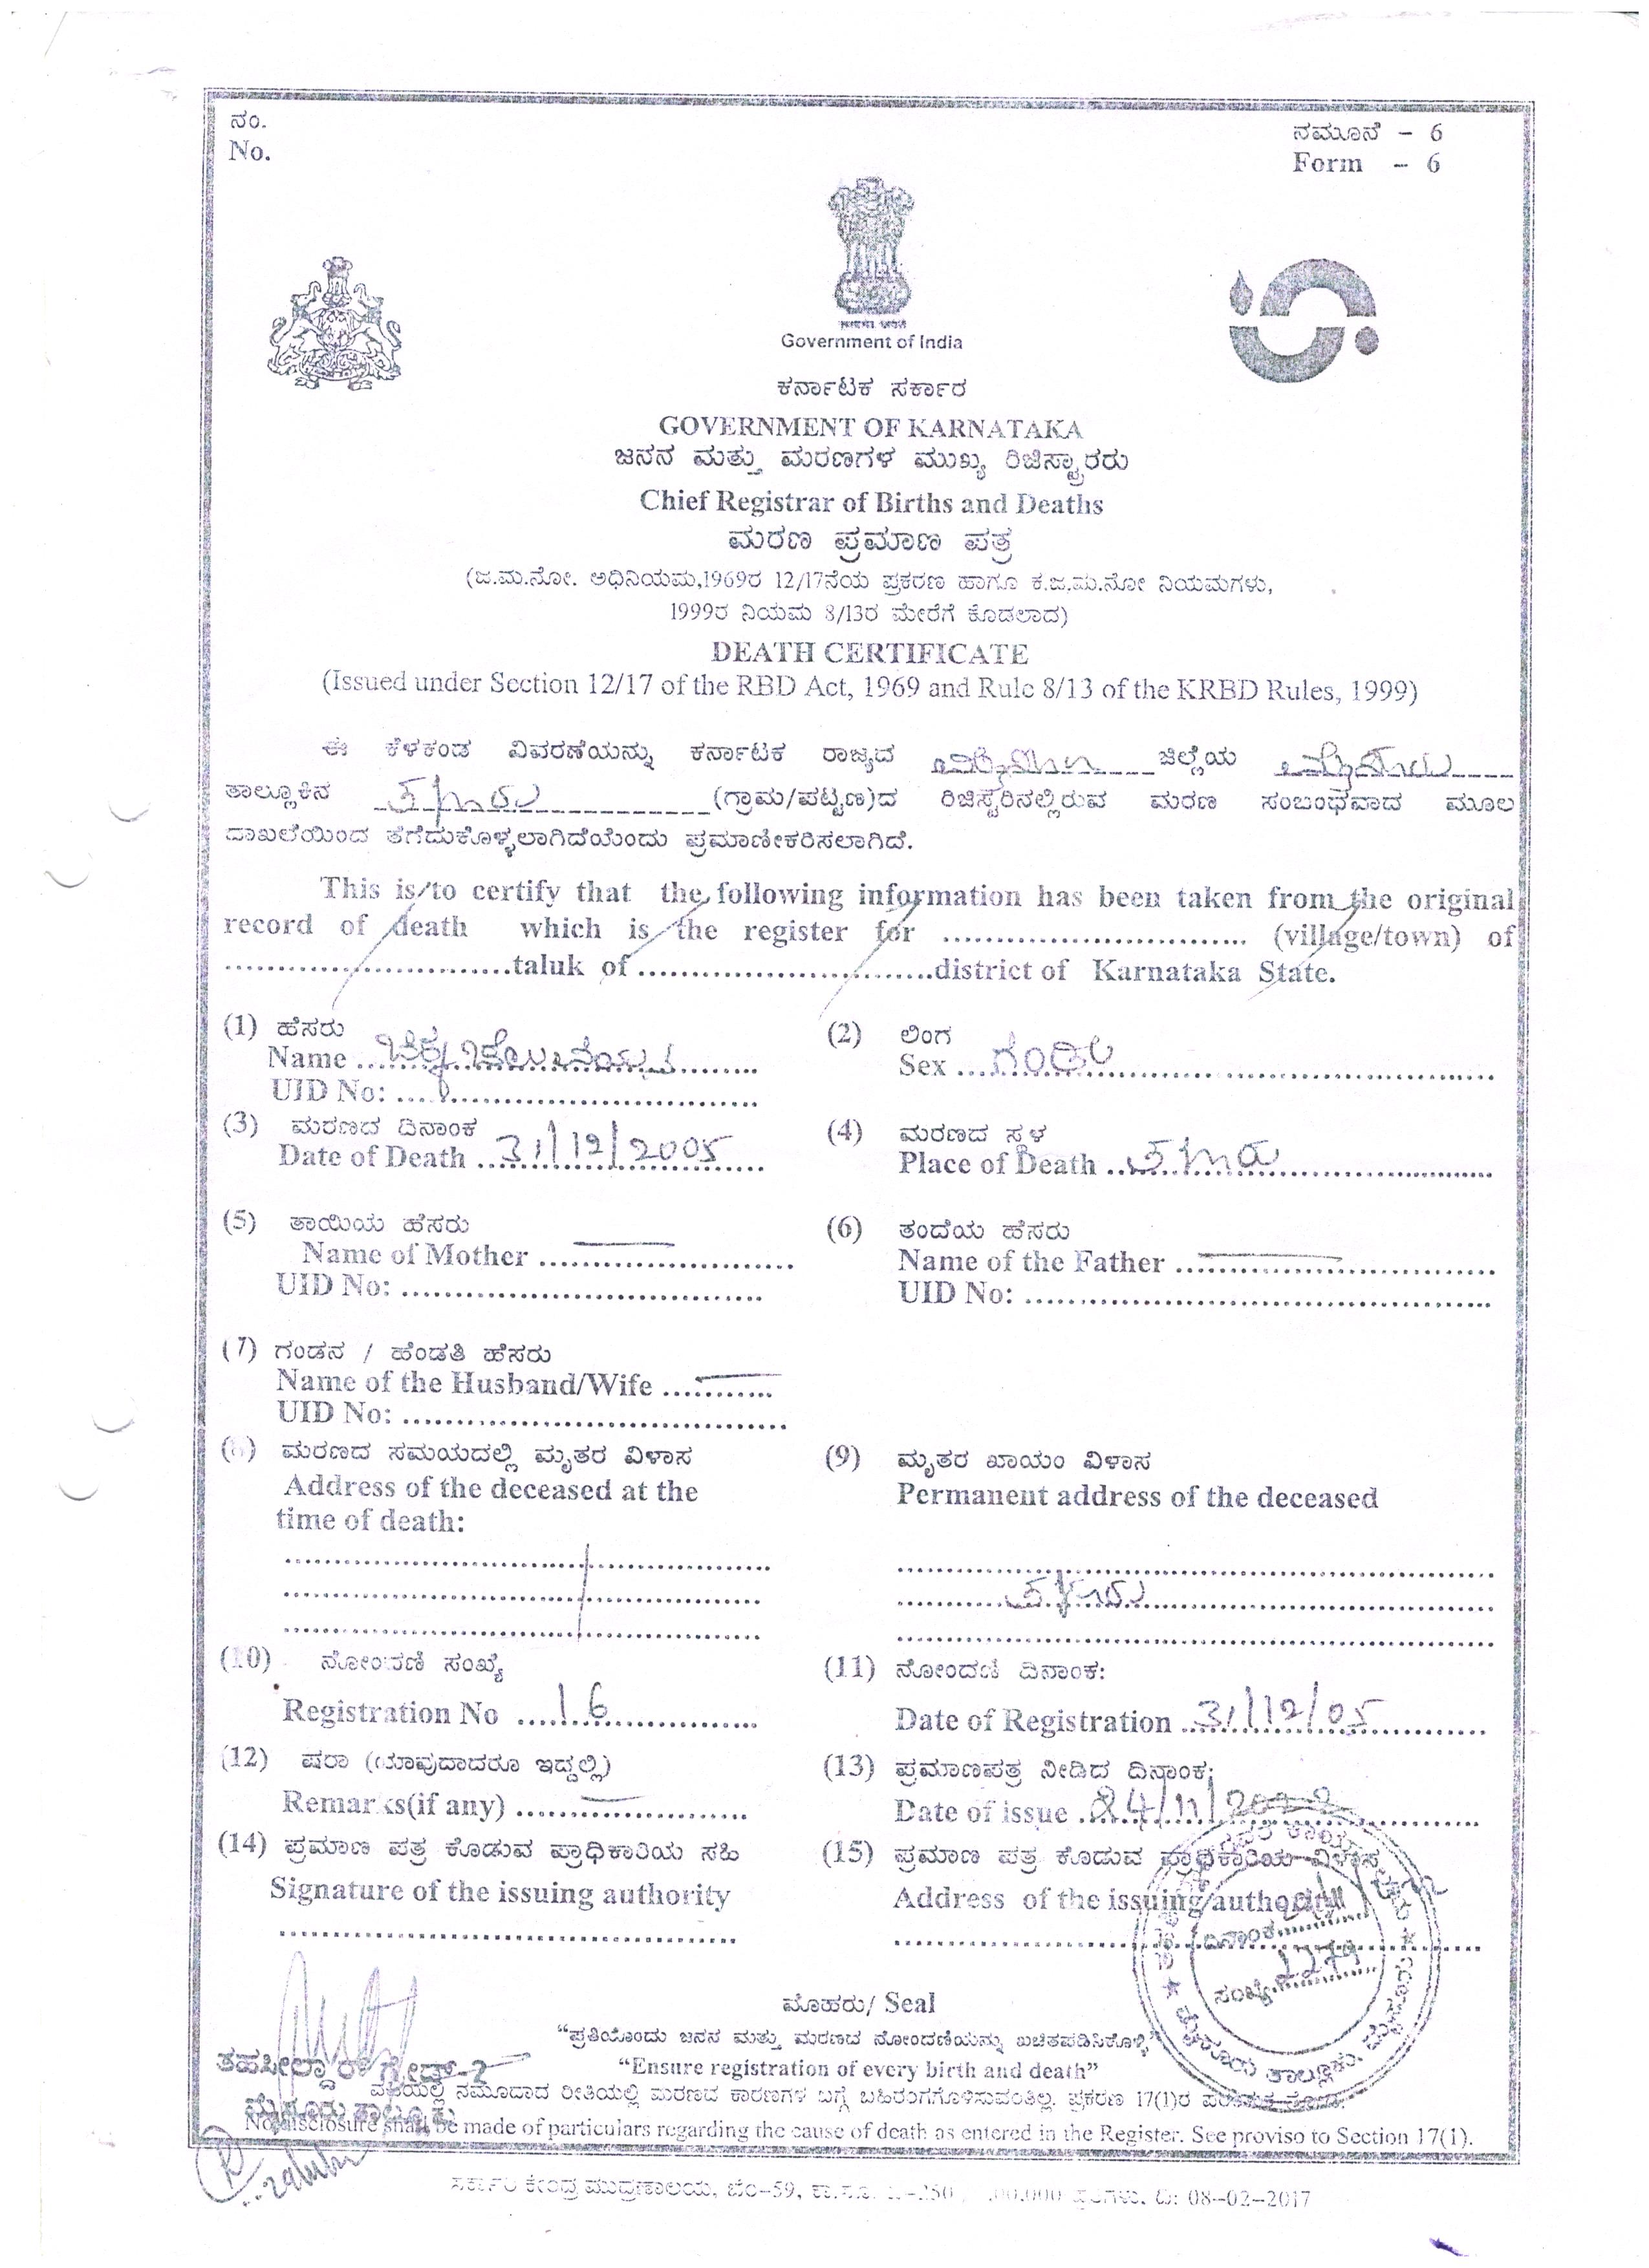 ನಂ.
No.
ನಮೂನೆ - 6
Form - 6
Government of India
ಕರ್ನಾಟಕ ಸರ್ಕಾರ
GOVERNMENT OF KARNATAKA
ಜನನ ಮತ್ತು ಮರಣಗಳ ಮುಖ್ಯ ರಿಜಿಸ್ಟ್ರಾರರು
Chief Registrar of Births and Deaths
ಮರಣ ಪ್ರಮಾಣ ಪತ್ರ
(ಜ.ಮ.ನೋ. ಅಧಿನಿಯಮ,1969ರ 12/17ನೆಯ ಪ್ರಕರಣ ಹಾಗೂ ಕ.ಜ.ಮ.ನೋ ನಿಯಮಗಳು,
1999ರ ನಿಯಮ 8/13ರ ಮೇರೆಗೆ ಕೊಡಲಾದ)
DEATH CERTIFICATE
(Issued under Section 12/17 of the RBD Act, 1969 and Rule 8/13 of the KRBD Rules, 1999)
ಈ ಕೆಳಕಂಡ ವಿವರಣೆಯನ್ನು ಕರ್ನಾಟಕ ರಾಜ್ಯದ ಮೈಸೂರು ಜಿಲ್ಲೆಯ ಮೈಸೂರು
ತಾಲ್ಲೂಕಿನ (ಗ್ರಾಮ/ಪಟ್ಟಣ)ದ ರಿಜಿಸ್ಟರಿನಲ್ಲಿರುವ ಮರಣ ಸಂಬಂಧವಾದ ಮೂಲ
ದಾಖಲೆಯಿಂದ ತೆಗೆದುಕೊಳ್ಳಲಾಗಿದೆಯೆಂದು ಪ್ರಮಾಣೀಕರಿಸಲಾಗಿದೆ.
This is to certify that the following information has been taken from the original
record of death which is the register for .............................. (village/town) of
..............................taluk of ..............................district of Karnataka State.
(1) ಹೆಸರು
Name
UID No:
(2) ಲಿಂಗ
Sex ಗಂಡು
(3) ಮರಣದ ದಿನಾಂಕ
Date of Death 31/12/2005
(4) ಮರಣದ ಸ್ಥಳ
Place of Death
(5) ತಾಯಿಯ ಹೆಸರು
Name of Mother
UID No:
(6) ತಂದೆಯ ಹೆಸರು
Name of the Father
UID No:
(7) ಗಂಡನ / ಹೆಂಡತಿ ಹೆಸರು
Name of the Husband/Wife
UID No:
(8) ಮರಣದ ಸಮಯದಲ್ಲಿ ಮೃತರ ವಿಳಾಸ
Address of the deceased at the
time of death:
(9) ಮೃತರ ಖಾಯಂ ವಿಳಾಸ
Permanent address of the deceased
(10) ನೋಂದಣಿ ಸಂಖ್ಯೆ
Registration No 16
(11) ನೋಂದಣಿ ದಿನಾಂಕ:
Date of Registration 31/12/05
(12) ಷರಾ (ಯಾವುದಾದರೂ ಇದ್ದಲ್ಲಿ)
Remarks(if any)
(13) ಪ್ರಮಾಣಪತ್ರ ನೀಡಿದ ದಿನಾಂಕ:
Date of issue
(14) ಪ್ರಮಾಣ ಪತ್ರ ಕೊಡುವ ಪ್ರಾಧಿಕಾರಿಯ ಸಹಿ
Signature of the issuing authority
(15) ಪ್ರಮಾಣ ಪತ್ರ ಕೊಡುವ ಪ್ರಾಧಿಕಾರಿಯ ವಿಳಾಸ
Address of the issuing authority
ದಿನಾಂಕ
ಸಂಖ್ಯೆ
ಮೊಹರು/ Seal
"ಪ್ರತಿಯೊಂದು ಜನನ ಮತ್ತು ಮರಣದ ನೋಂದಣಿಯನ್ನು ಖಚಿತಪಡಿಸಿಕೊಳ್ಳಿ"
ತಹಸೀಲ್ದಾರ್ ಗ್ರೇಡ್-2
"Ensure registration of every birth and death"
ನಮೂದಾದ ರೀತಿಯಲ್ಲಿ ಮರಣದ ಕಾರಣಗಳ ಬಗ್ಗೆ ಬಹಿರಂಗಗೊಳಿಸುವಂತಿಲ್ಲ. ಪ್ರಕರಣ 17(1)ರ
ಮೈಸೂರು ತಾಲ್ಲೂಕು
No disclosure shall be made of particulars regarding the cause of death as entered in the Register. See proviso to Section 17(1).
ಸರ್ಕಾರಿ ಕೇಂದ್ರ ಮುದ್ರಣಾಲಯ, ಬೆಂ-59, ದಿ: 08-02-2017